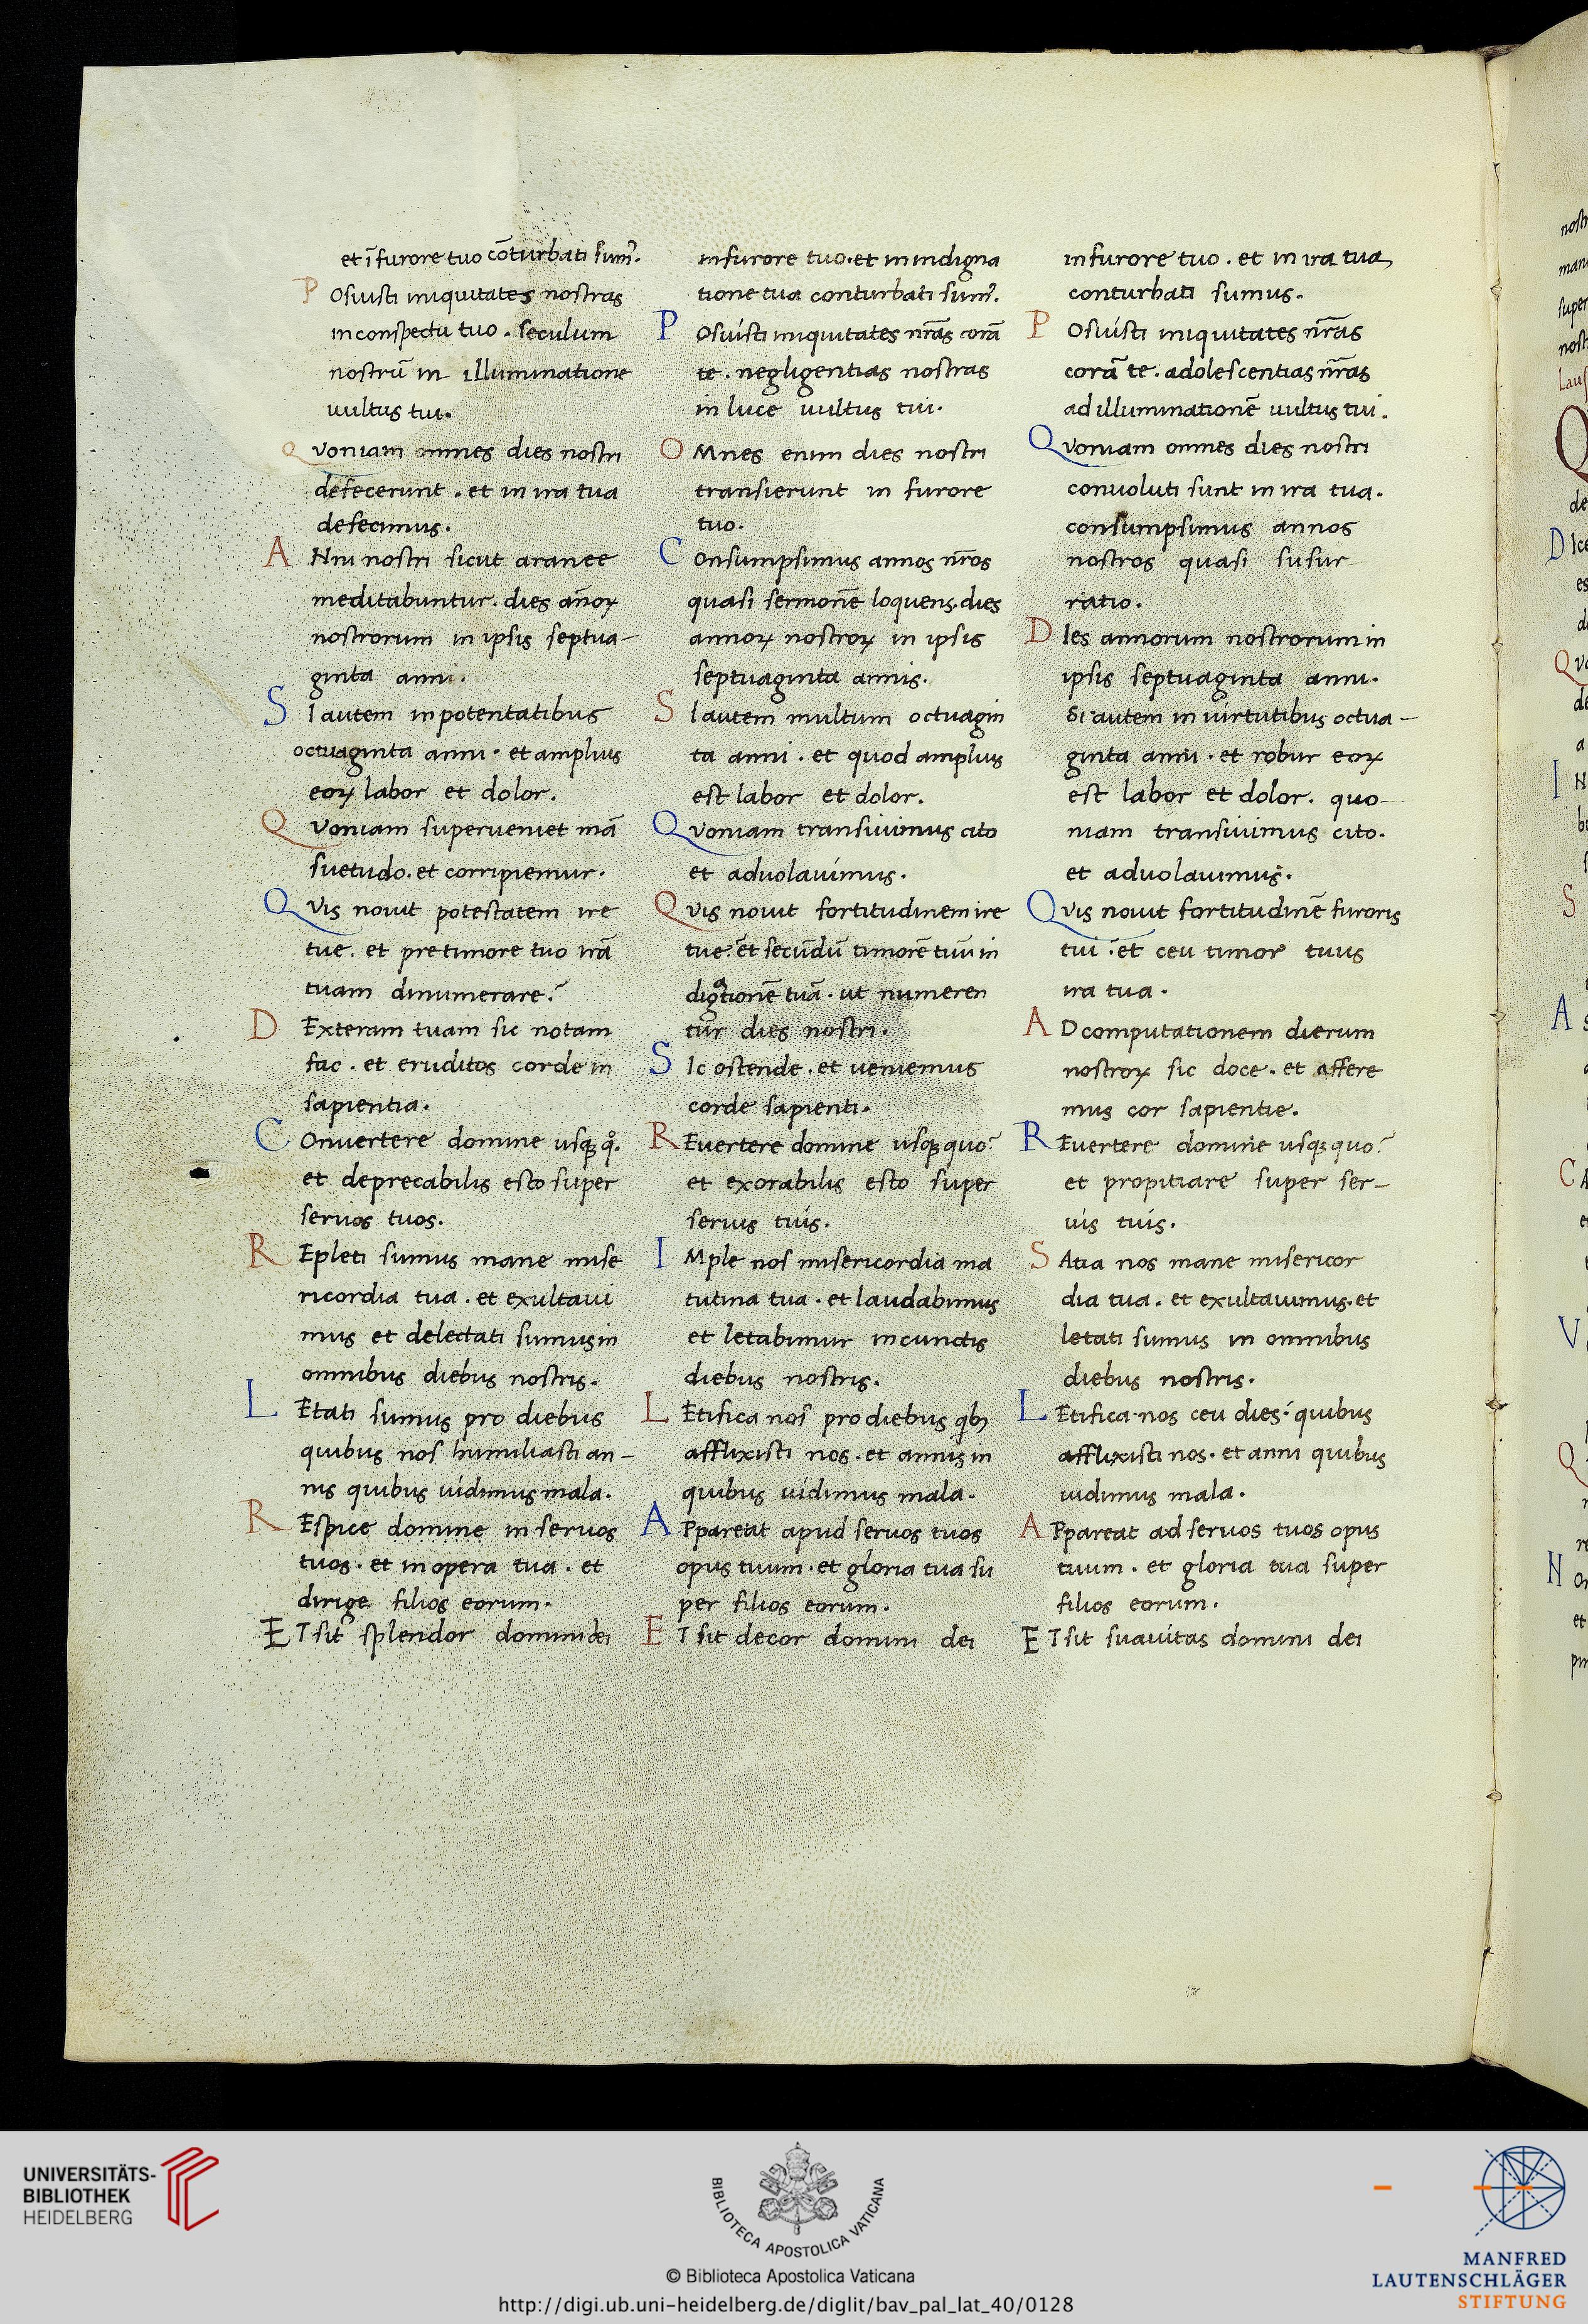 et ĩ furore tuo cõturbati sumꝰ.
Posuisti iniquitates nostras
in conspectu tuo. seculum
nostrũ in illuminatione
uultus tui.
Quoniam omnes dies nostri
defecerunt. et in ira tua
defecimus.
Anni nostri sicut aranee
meditabuntur. dies añoꝝ
nostrorum in ipsis septua-
ginta anni.
Si autem in potentatibus
octuaginta anni. et amplius
eoꝝ labor et dolor.
Quoniam superueniet mã
suetudo. et corripiemur.
Quis nouit potestatem ire
tue. et pre timore tuo irã
tuam dinumerare?
Dexteram tuam sic notam
fac. et eruditos corde in
sapientia.
Conuertere domine usqꝫ qͦ.
et deprecabilis esto super
seruos tuos.
Repleti sumus mane mise
ricordia tua. et exultaui
mus et delectati sumus in
omnibus diebus nostris.
Letati sumus pro diebus
quibus nos humiliasti an-
nis quibus uidimus mala.
Respice domine in seruos
tuos. et in opera tua. et
dirige filios eorum.
ET sit splendor domini dei
in furore tuo. et in indigna
tione tua conturbati sumꝰ.
Posuisti iniquitates nr̃as corã
te. negligentias nostras
in luce uultus tui.
OMnes enim dies nostri
transierunt in furore
tuo.
Consumpsimus annos nr̃os
quasi sermonẽ loquens. dies
annoꝝ nostroꝝ in ipsis
septuaginta annis.
SI autem multum octuagin
ta anni. et quod amplius
est labor et dolor.
Quoniam transiuimus cito
et aduolauimus.
Quis nouit fortitudinem ire
tue? et secũdũ timorẽ tuũ in
dignationẽ tuã. ut numeren
tur dies nostri.
SIc ostende. et ueniemus
corde sapienti.
REuertere domine usqꝫ quo?
et exorabilis esto super
seruis tuis.
IMple nos misericordia ma
tutina tua. et laudabimus
et letabimur in cunctis
diebus nostris.
LEtifica nos pro diebus qͥbꝫ
afflixisti nos. et annis in
quibus uidimus mala.
APpareat apud seruos tuos
opus tuum. et gloria tua su
per filios eorum.
ET sit decor domini dei
in furore tuo. et in ira tua
conturbati sumus.
Posuisti iniquitates nr̃as
corã te. adolescentias nr̃as
ad illuminationẽ uultus tui.
Quoniam omnes dies nostri
conuoluti sunt in ira tua.
consumpsimus annos
nostros quasi susur
ratio.
DIes annorum nostrorum in
ipsis septuaginta anni.
Si autem in uirtutibus octua-
ginta anni. et robur eoꝝ
est labor et dolor. quo-
niam transiuimus cito.
et aduolauimus.
Quis nouit fortitudinẽ furoris
tui? et ceu timor tuus
ira tua.
AD computationem dierum
nostroꝝ sic doce. et affere
mus cor sapientie.
REuertere domine usqꝫ quo?
et propitiare super ser-
uis tuis.
SAtia nos mane misericor
dia tua. et exultauimus. et
letati sumus in omnibus
diebus nostris.
LEtifica nos ceu dies? quibus
afflixisti nos. et anni quibus
uidimus mala.
APpareat ad seruos tuos opus
tuum. et gloria tua super
filios eorum.
ET sit suauitas domini dei
UNIVERSITÄTS-
BIBLIOTHEK
HEIDELBERG
BIBLIOTECA APOSTOLICA VATICANA
© Biblioteca Apostolica Vaticana
http://digi.ub.uni-heidelberg.de/diglit/bav_pal_lat_40/0128
MANFRED
LAUTENSCHLÄGER
STIFTUNG